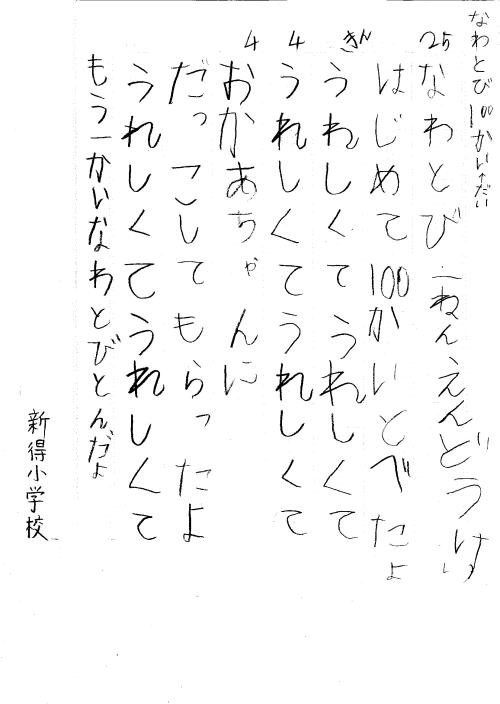 なわとび100かい←だい
25 なわとび 一ねん えんどう けい
はじめて100かいとべたよ
きん うれしくてうれしくて
4 うれしくてうれしくて
4 おかあちゃんに
だっこしてもらったよ
うれしくてうれしくて
もう一かいなわとびとんだよ
新得小学校